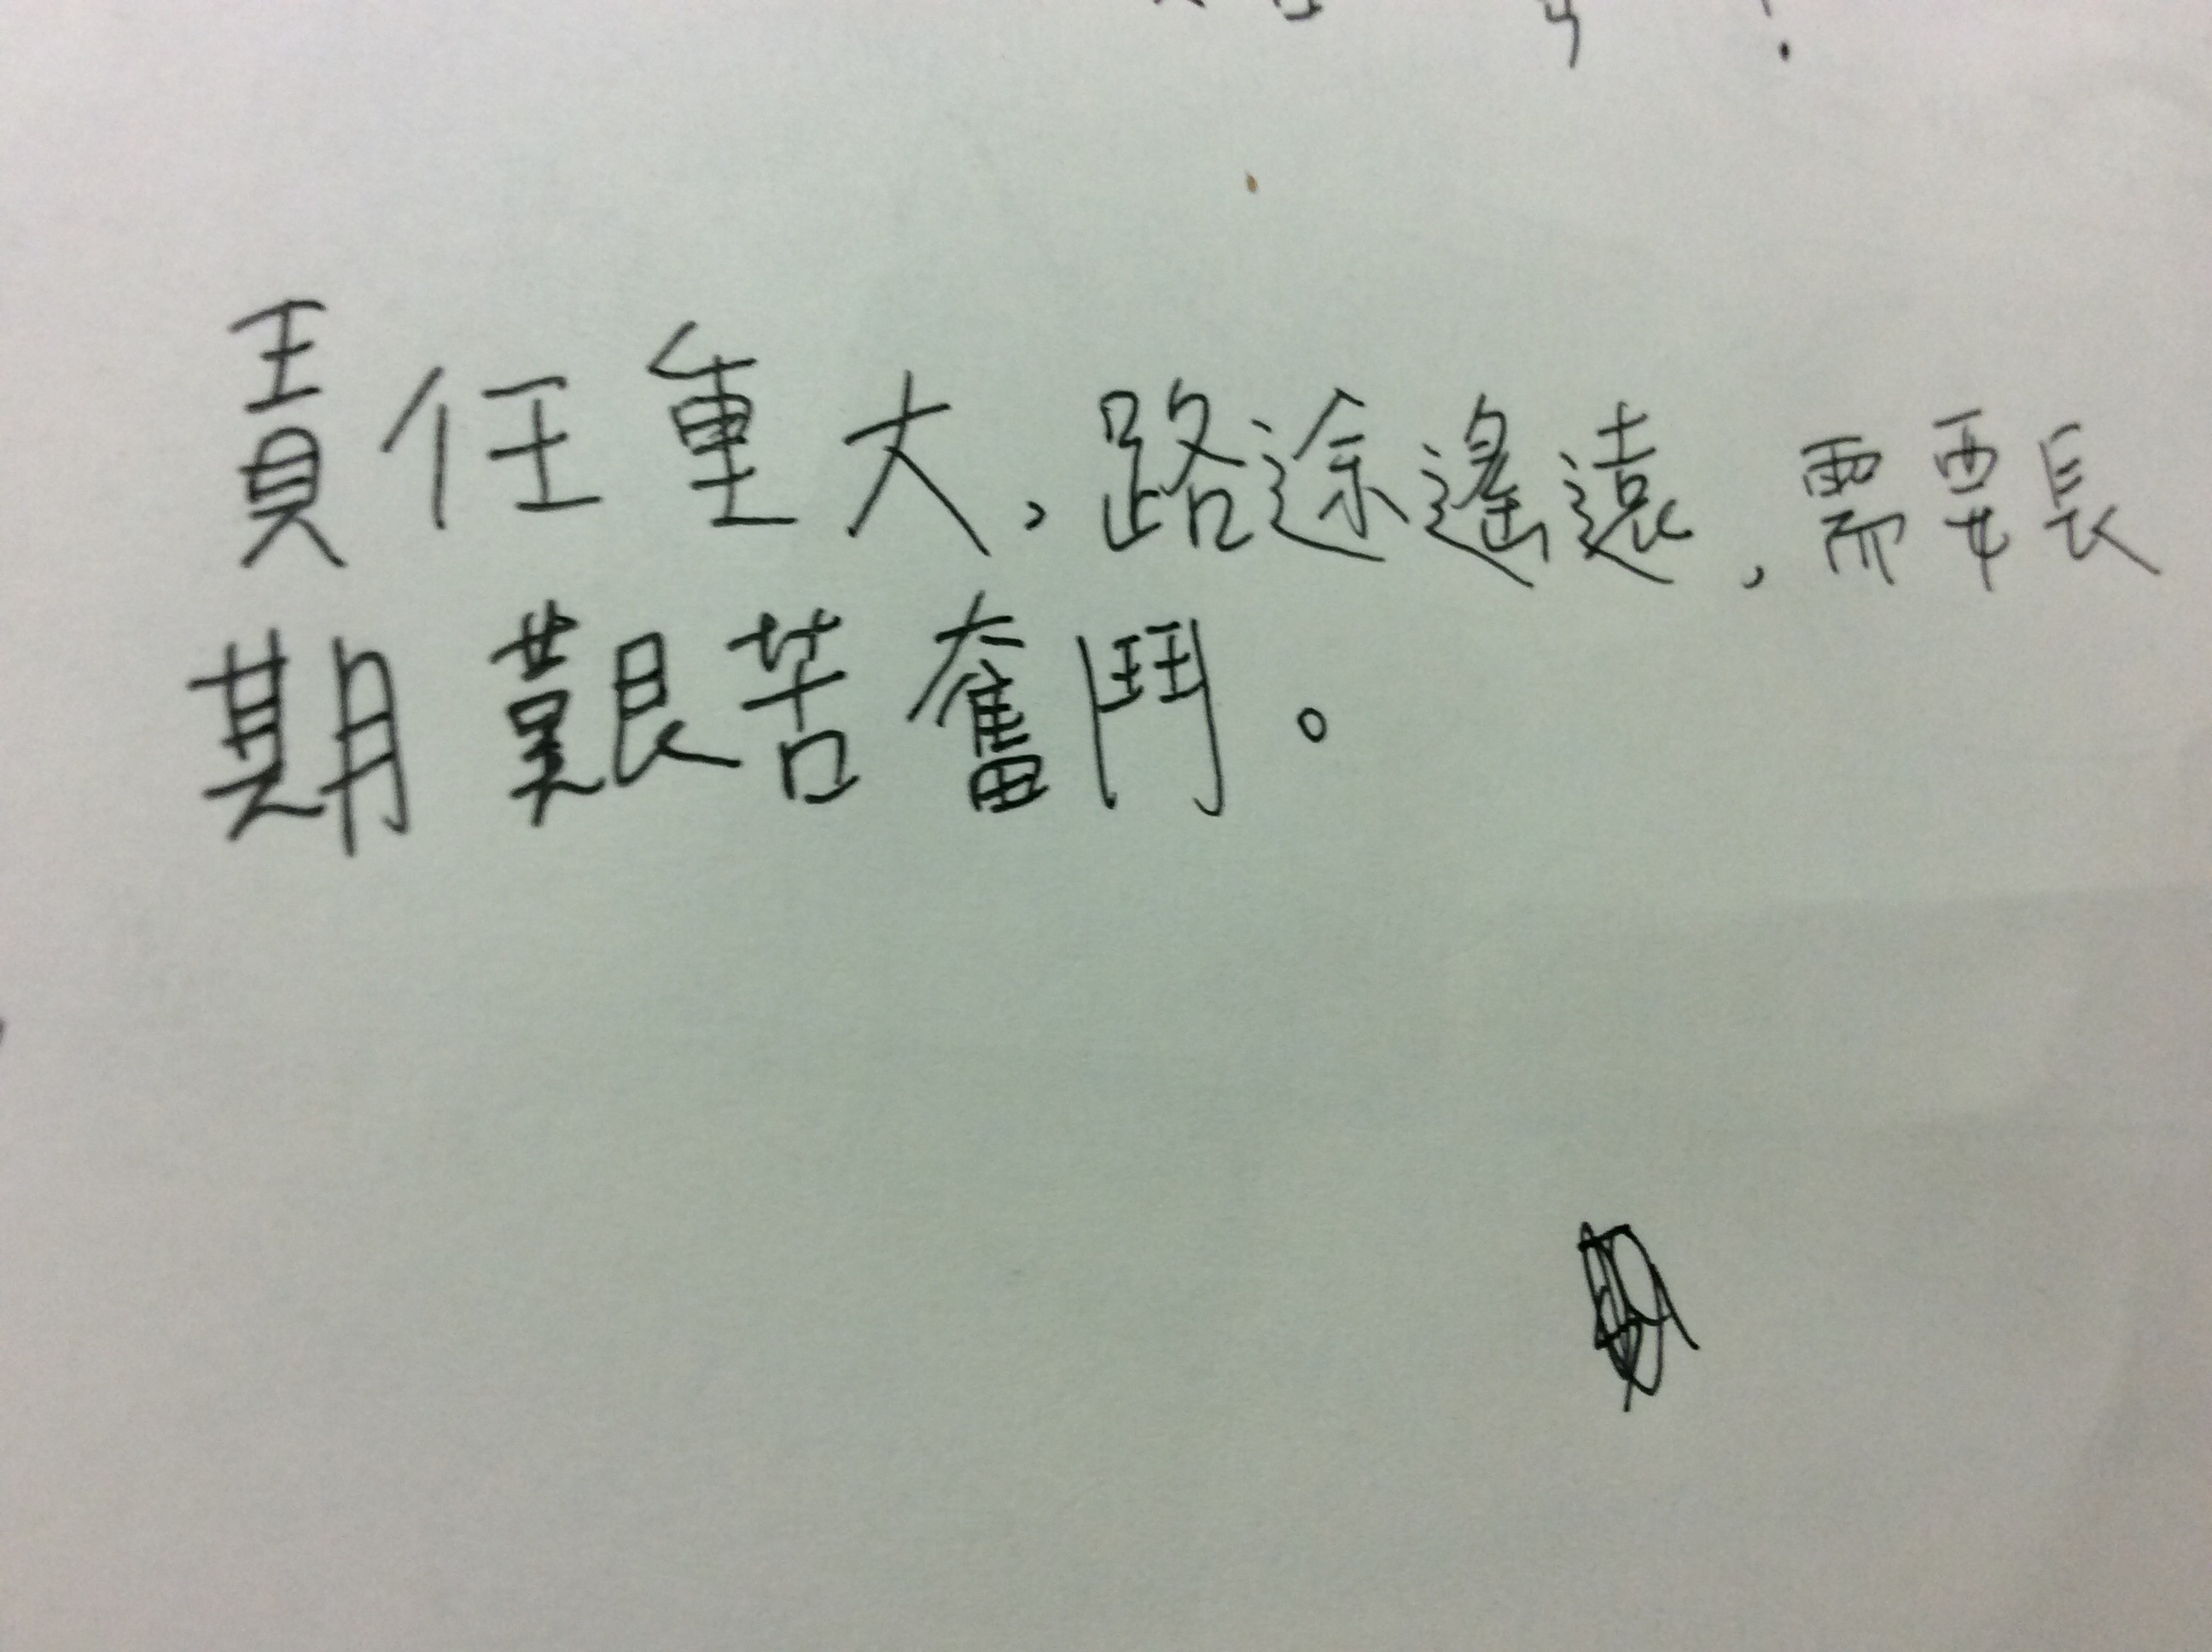 責任重大，路途遙遠，需要長
期艱苦奮鬥。